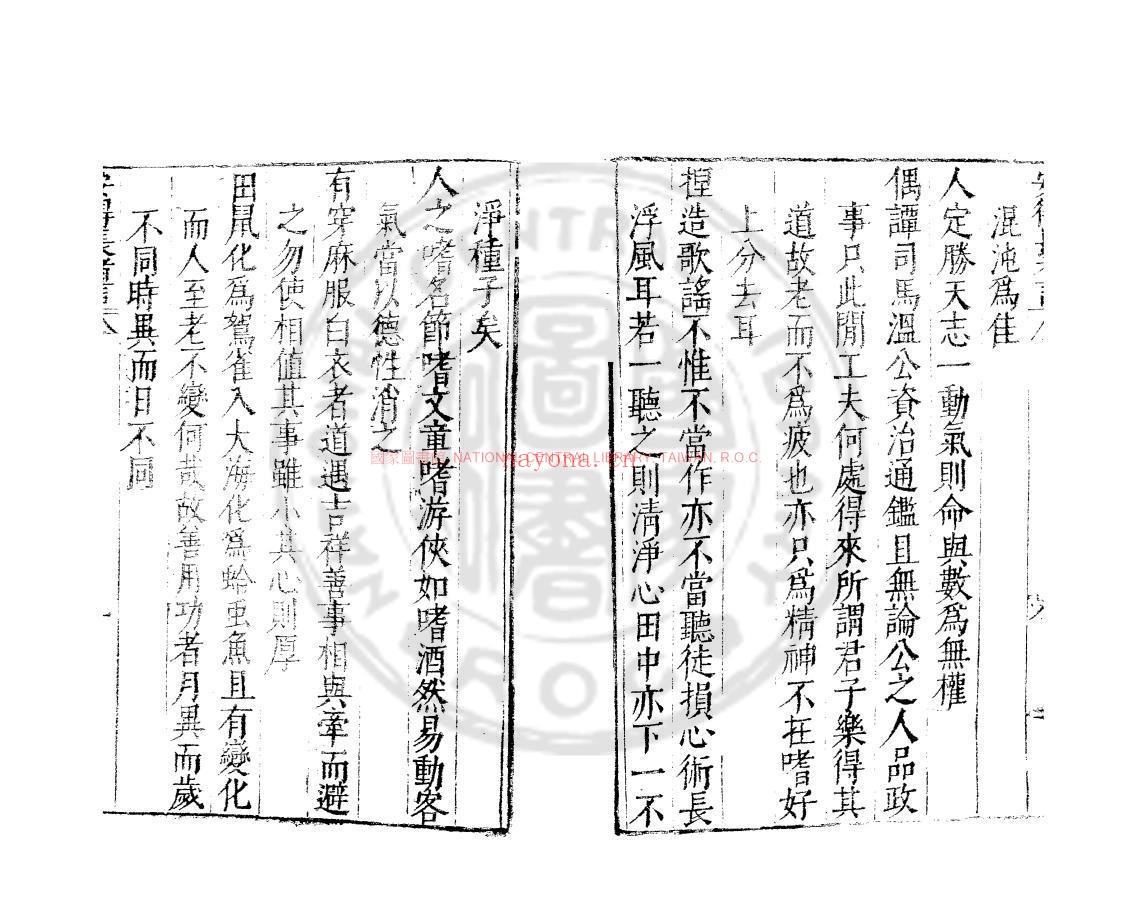 混沌爲佳
人定勝天志一動氣則命與數爲無權
偶譚司馬溫公資治通鑑且無論公之人品政
事只此閒工夫何處得來所謂君子樂得其
道故老而不爲疲也亦只爲精神不在嗜好
上分去耳
捏造歌謠不惟不當作亦不當聽徒損心術長
浮風耳若一聽之則清淨心田中亦下一不
淨種子矣
人之嗜名節嗜文章嗜游俠如嗜酒然易動客
氣當以德性消之
有穿麻服白衣者道遇吉祥善事相與牽而避
之勿使相值其事雖小其心則厚
田鼠化爲鴽雀入大海化爲蛤虽魚且有變化
而人至老不變何哉故善用功者月異而歲
不同時異而日不同
國家圖書館 NATIONAL CENTRAL LIBRARY, TAIWAN, R.O.C.
nayona.cn